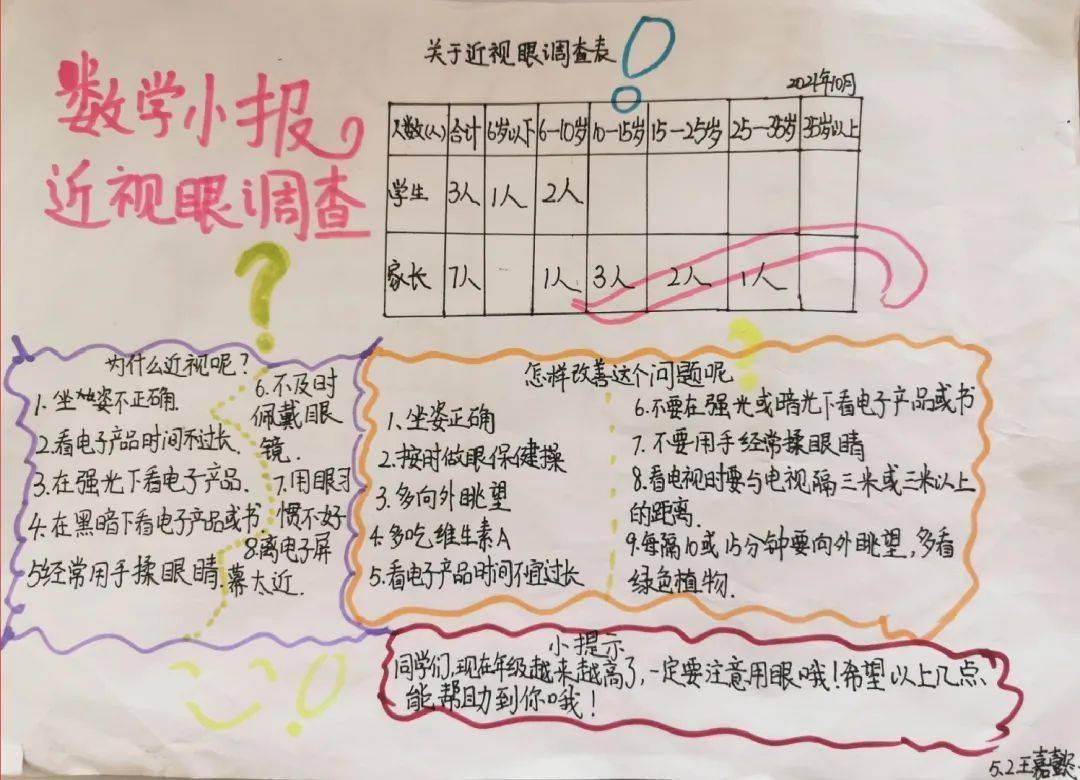 数学小报
近视眼调查
关于近视眼调查表
2021年10月
人数(人) 合计 6岁以下 6—10岁 10—15岁 15—25岁 25—35岁 35岁以上
学生 3人 1人 2人
家长 7人 1人 3人 2人 1人
为什么近视呢?
1.坐姿不正确.
2.看电子产品时间过长.
3.在强光下看电子产品.
4.在黑暗下看电子产品或书.
5经常用手揉眼睛.
6.不及时
佩戴眼
镜.
7.用眼习
惯不好
8.离电子屏
幕太近.
怎样改善这个问题呢
1.坐姿正确
2.按时做眼保健操
3.多向外眺望
4.多吃维生素A
5.看电子产品时间不宜过长
6.不要在强光或暗光下看电子产品或书
7.不要用手经常揉眼睛
8.看电视时要与电视隔三米或三米以上
的距离.
9.每隔10或15分钟要向外眺望,多看
绿色植物.
小提示
同学们,现在年级越来越高了,一定要注意用眼哦!希望以上几点、
能帮助到你哦!
5.2王嘉懿